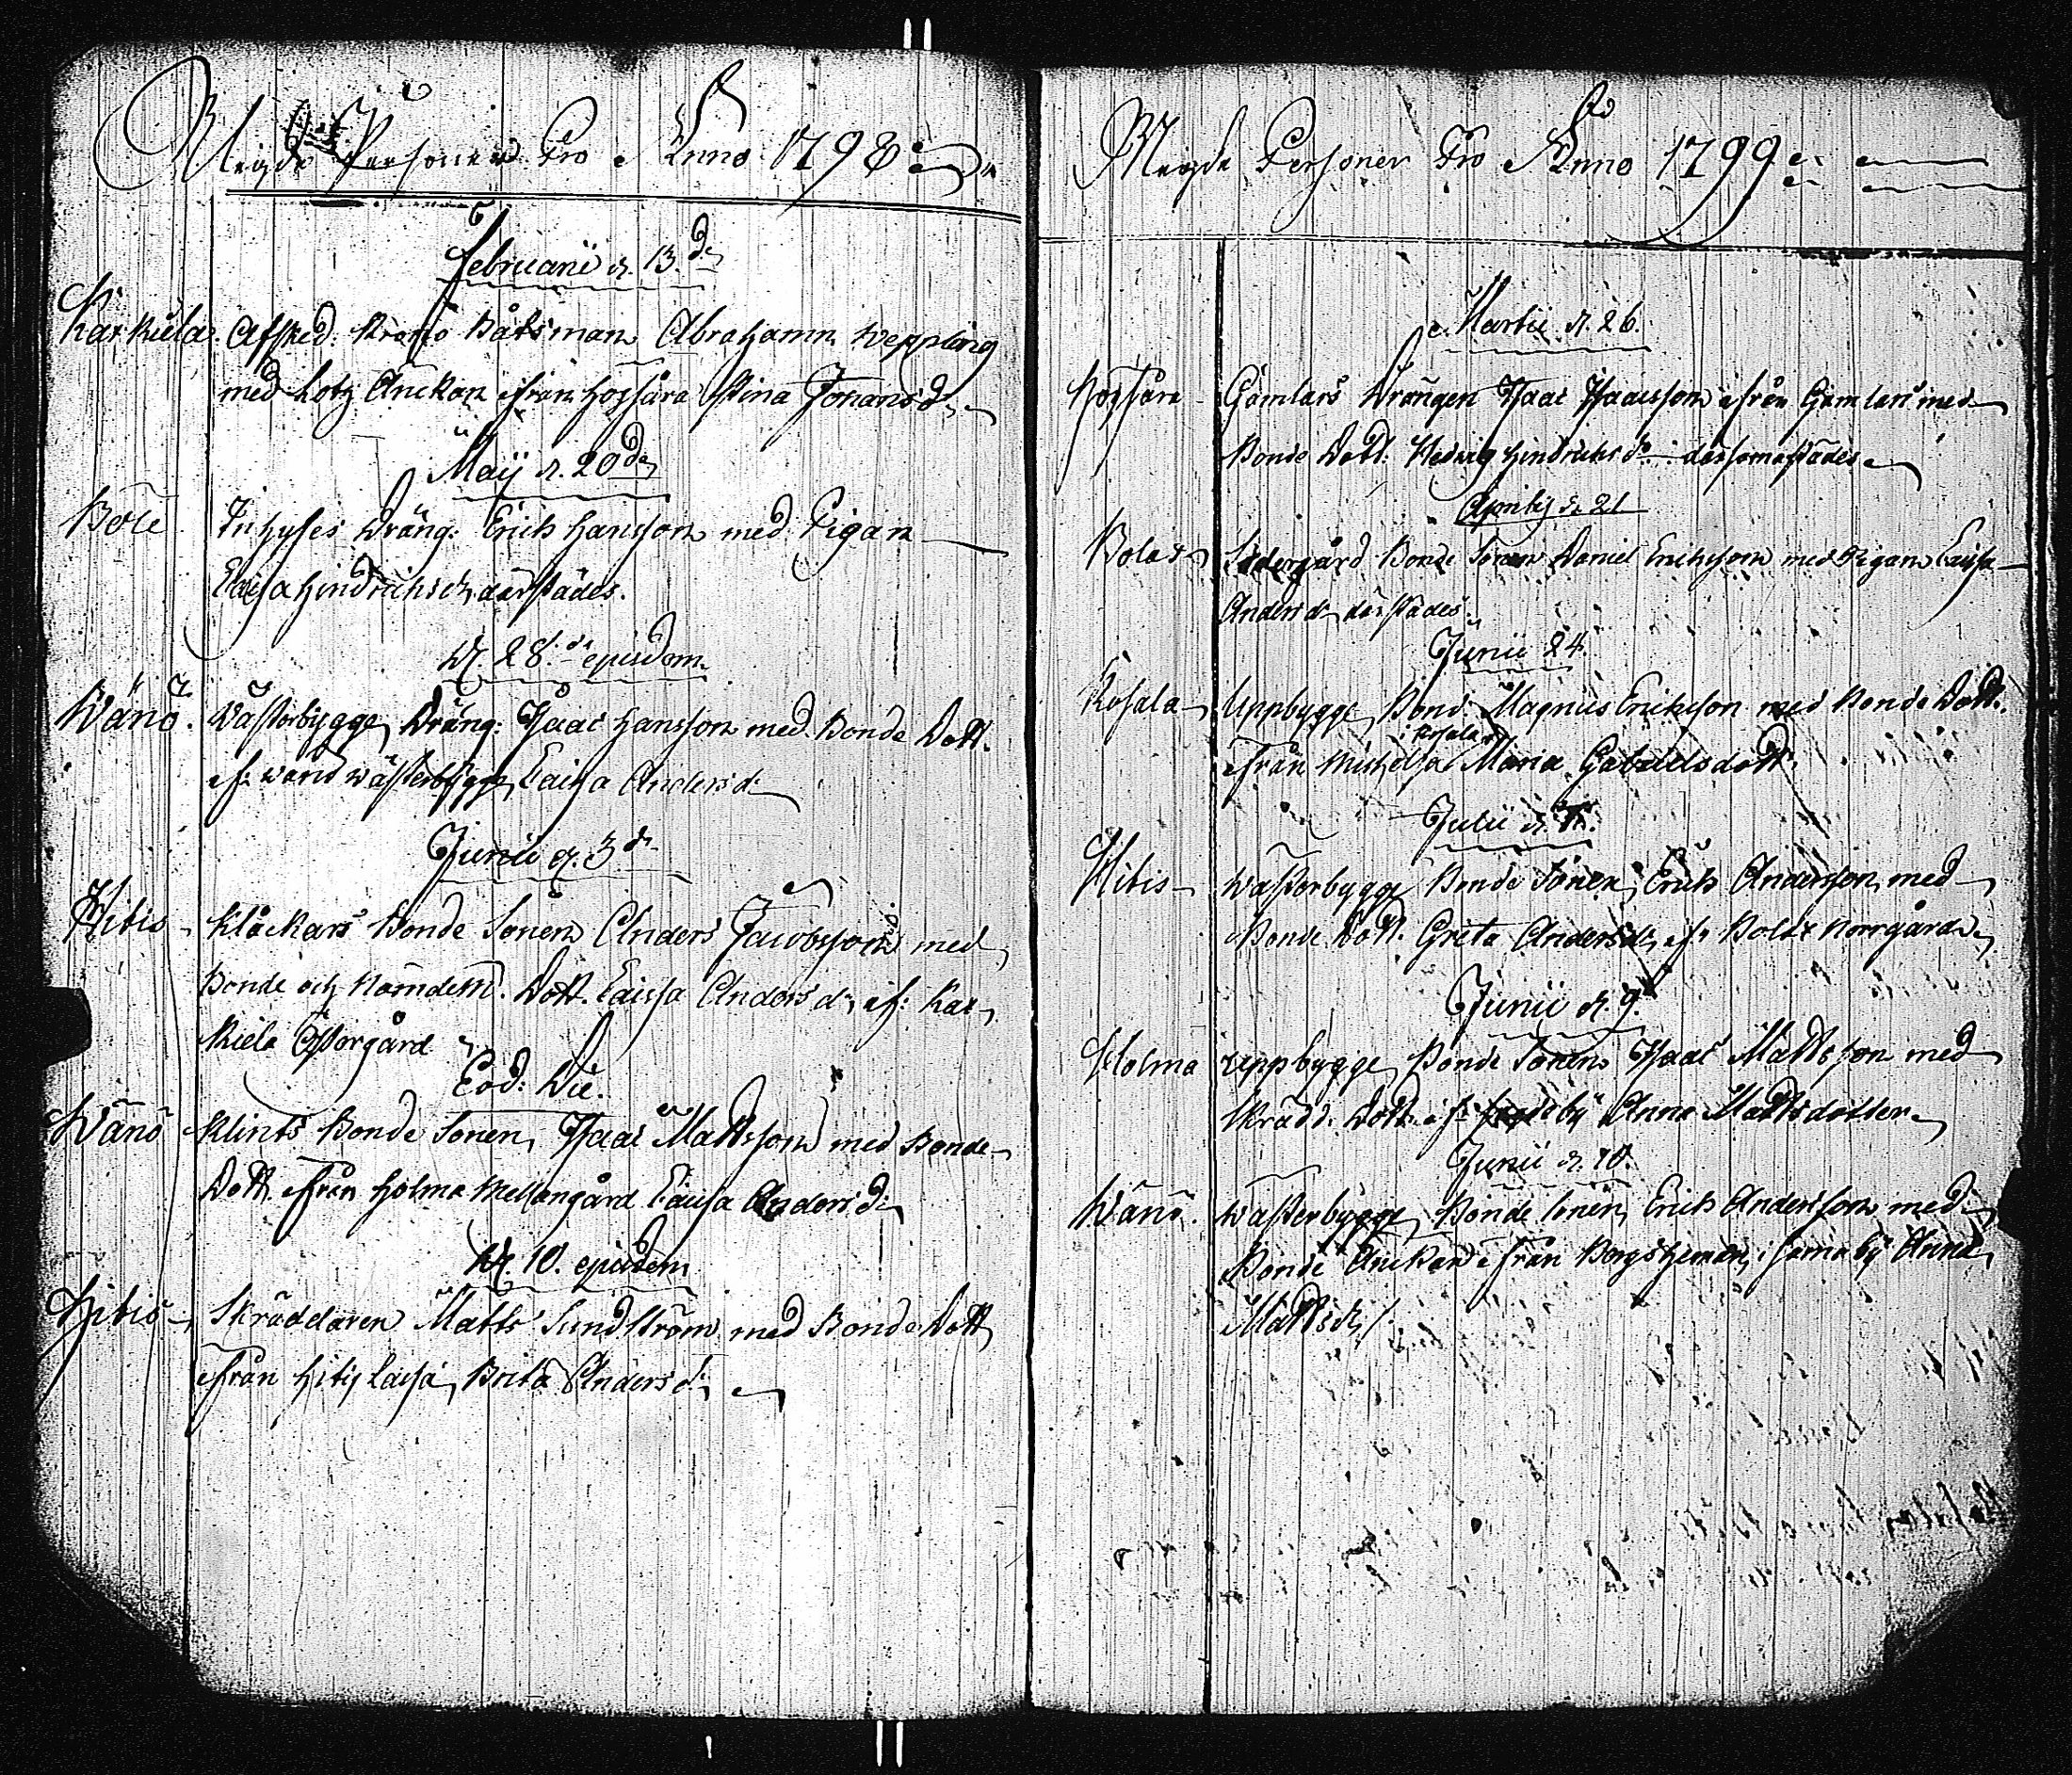 Wigde Personer Pro Anno 1798
Februarii d. 13de
Karkula. Afsked. Krono Båtsman Abrahamn Weppling
med Lots Änckan ifrån Högsåra Stina Johansd:
Maij d. 20de
Böle Inhyses Dräng: Erich Hansson med Pigan
Caisa Hindrichsd: därstädes.
D. 28de ejusdom.
Wänö. Wästerbygge Dräng: Isaac Hansson med Bonde Dott.
if: Wänö Wästerbygge, Caisa Andersd:
Junii d. 3de
Hitis Klåckars Bonde Sonen Anders Jacobsson med
Bonde och Nämdem. Dott. Caissa Andersd: if: Kar-
kiela Östorgård
Eod: Die.
Wänö Klints Bonde Sonen, Isaac Mattsson med Bonde
Dott. ifrån Holma Mellangård Caisa Andersd:
D. 10. ejusdem
Hitis Skräddaren Matts Sundström med Bonde Dott
ifrån Hitis Brita Andersd:
Wigde Personer Pro Anno 1799
Martii d. 26.
Högsåra Gämlars Drängen Isaac Isaacsson ifrån Gämlars med
Bonde Dott. Hedwig Hindrichsd: därsomastädes
Aprilis d. 21
Bolax Södergård Bonde Sonen Daniel Erichsson med Pigan Caisa
Andersd: därstädes.
Junii 24.
Rosala Uppbygge Bond. Magnus Ericksson med Bonde Dott.
i Rosala
ifrån Michelsa Maria Gabrielsdott
Julii d.
Hitis Wästerbygge Bonde Sonen, Erich Andersson med
Bonde Dott. Greta Andersd: if: Bolax Norrgård
Junii d. 9.
Holma Uppbygge Bonde Sonen Isaac Mattsson med
Skrädd. Dott. if: by Anna Mattsdotter
Junii d. 10.
Wänö. Wästerbygge Bonde Sonen, Erich Andersson med
Bonde Änckan ifrån Borgs Heman, i samma by Anna
Mattsd: